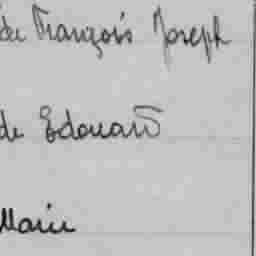 de François Joseph
de Edouard
Marie